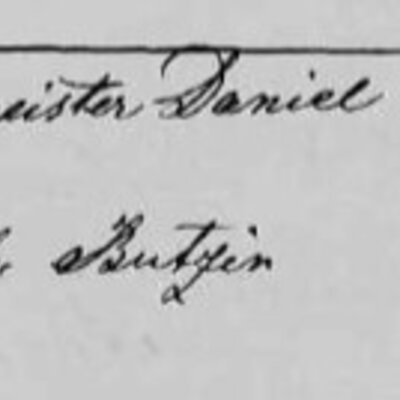 eister Daniel
Butzin